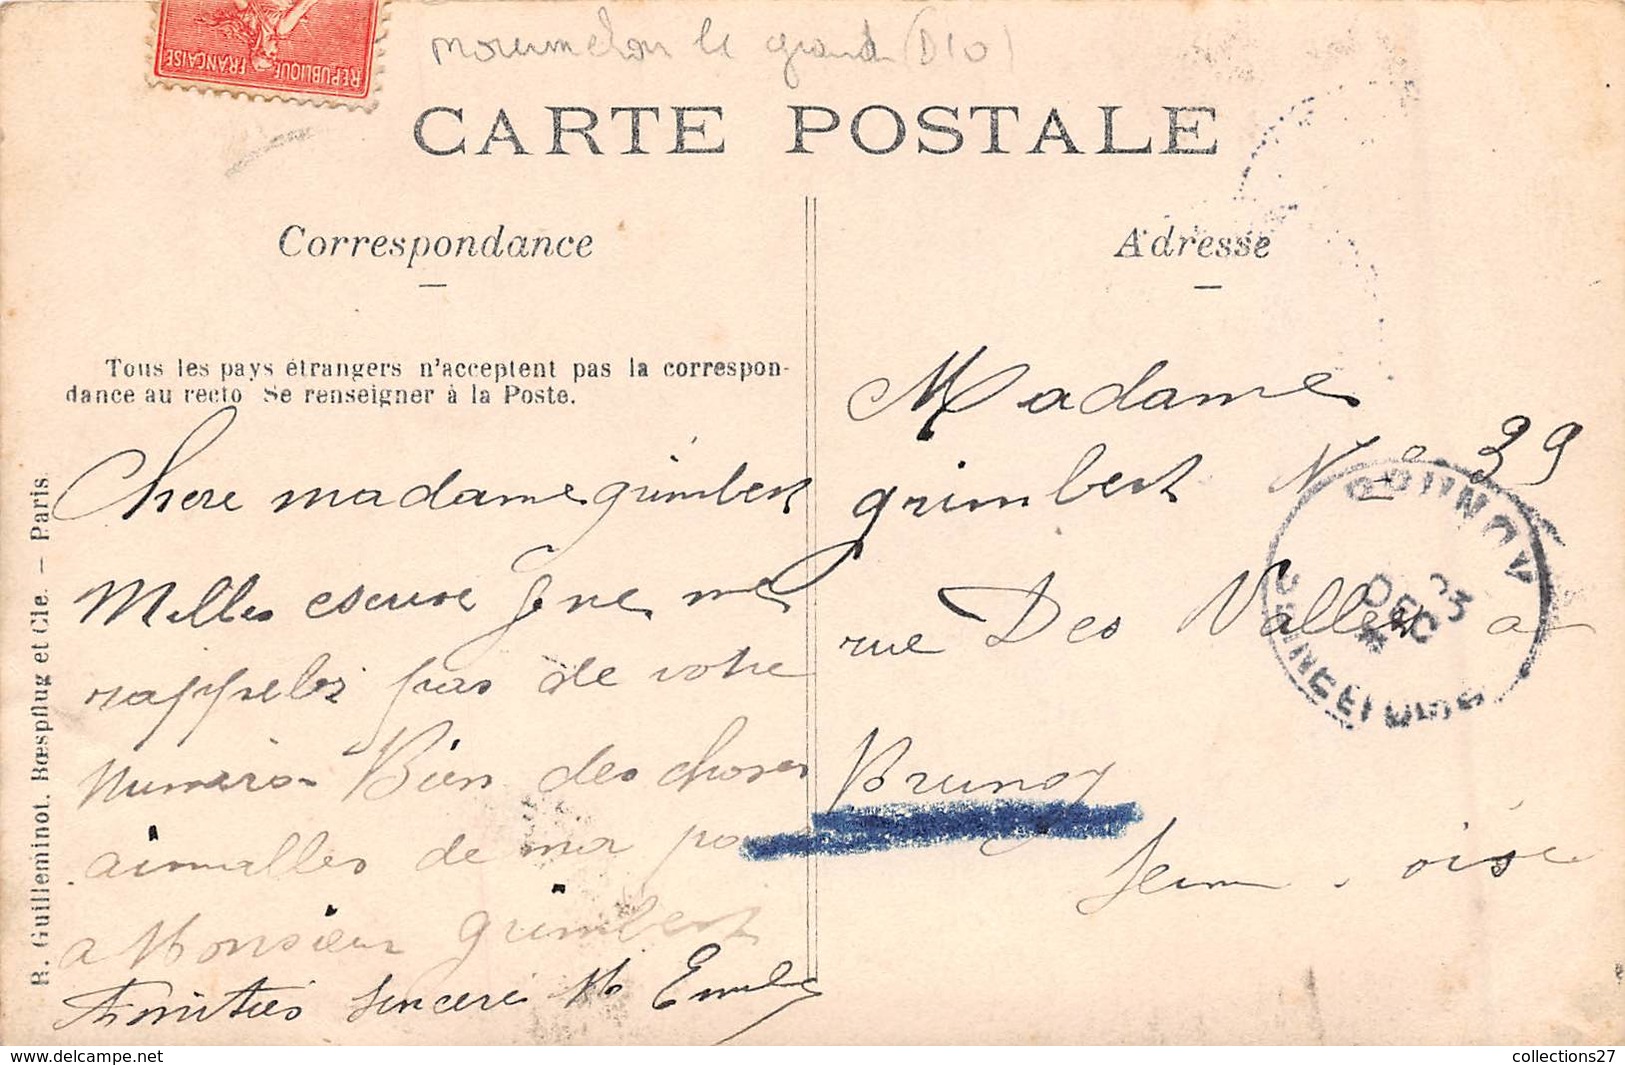 RÉPUBLIQUE FRANÇAISE
mourmelon le grand (D10)
CARTE POSTALE
Correspondance
Adresse
Tous les pays étrangers n'acceptent pas la correspon-
dance au recto Se renseigner à la Poste.
R. Guilleminot, Bœspflug et Cie. — Paris.
Chere madame grimbert
Milles escuse Je ne me
rappelez pas de votre
numero Bien des choses
aimalles de ma part
a Monsieur grimbert
Amitiés sincere
Madame
grimbert No 39
rue Des Vallées a
Brunoy
Seine - oise
BRUNOY
DEC
SEINE-ET-OISE
collections27